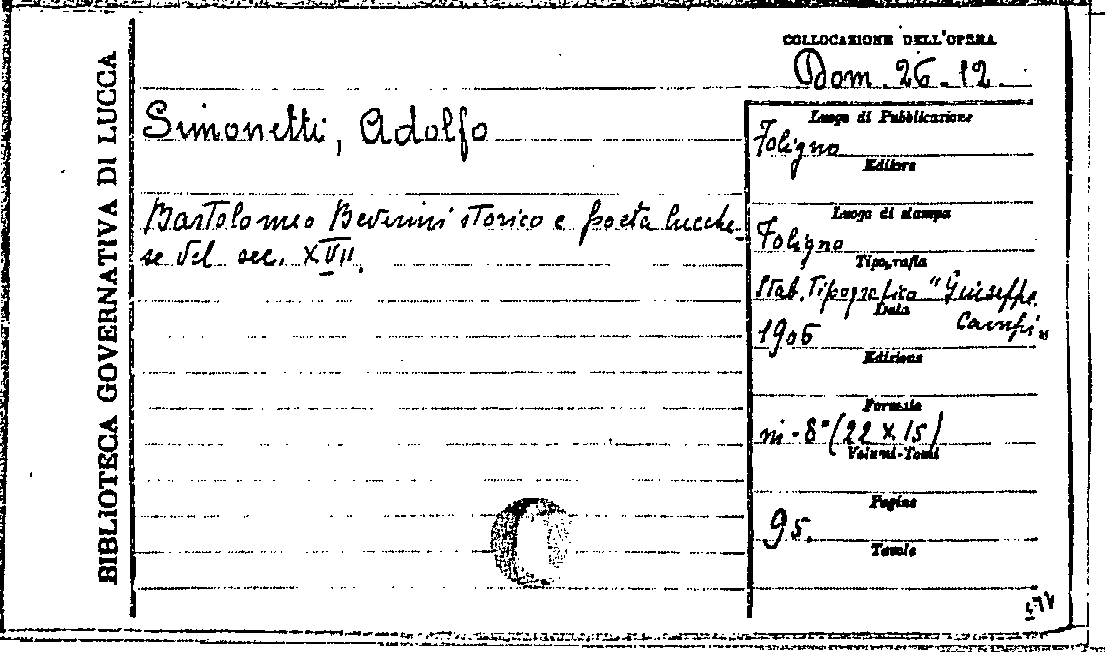 BIBLIOTECA GOVERNATIVA DI LUCCA
COLLOCAZIONE DELL'OPERA
Dom. 26.12.
Simonetti, Adolfo
Bartolomeo Beverini storico e poeta lucche-
se del sec. XVII.
Luogo di Pubblicazione
Foligno
Editore
Luogo di stampa
Foligno
Tipografia
Stab. Tipografico "Giuseppe
Campi"
Data
1905
Edizione
Formato
in-8° (22 X 15)
Volumi-Tomi
Pagine
95.
Tavole